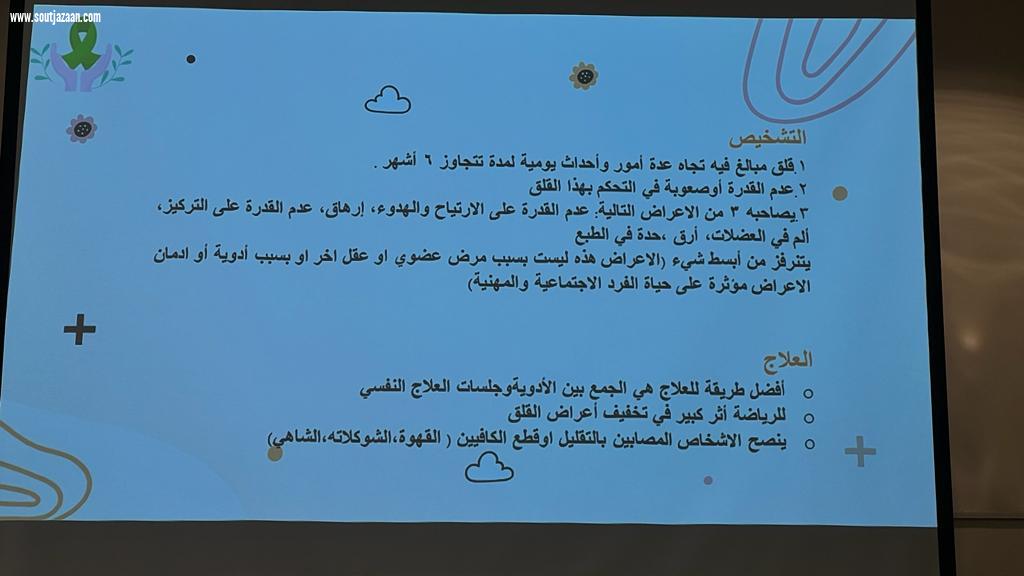 www.soutjazaan.com
التشخيص
١.قلق مبالغ فيه تجاه عدة أمور وأحداث يومية لمدة تتجاوز ٦ أشهر .
٢.عدم القدرة أوصعوبة في التحكم بهذا القلق
٣.يصاحبه ٣ من الاعراض التالية: عدم القدرة على الارتياح والهدوء، إرهاق، عدم القدرة على التركيز،
ألم في العضلات، أرق ،حدة في الطبع
يتنرفز من أبسط شيء (الاعراض هذه ليست بسبب مرض عضوي او عقل اخر او بسبب أدوية أو ادمان
الاعراض مؤثرة على حياة الفرد الاجتماعية والمهنية)
العلاج
أفضل طريقة للعلاج هي الجمع بين الأدويةوجلسات العلاج النفسي
للرياضة أثر كبير في تخفيف أعراض القلق
ينصح الاشخاص المصابين بالتقليل اوقطع الكافيين ( القهوة،الشوكلاته،الشاهي)